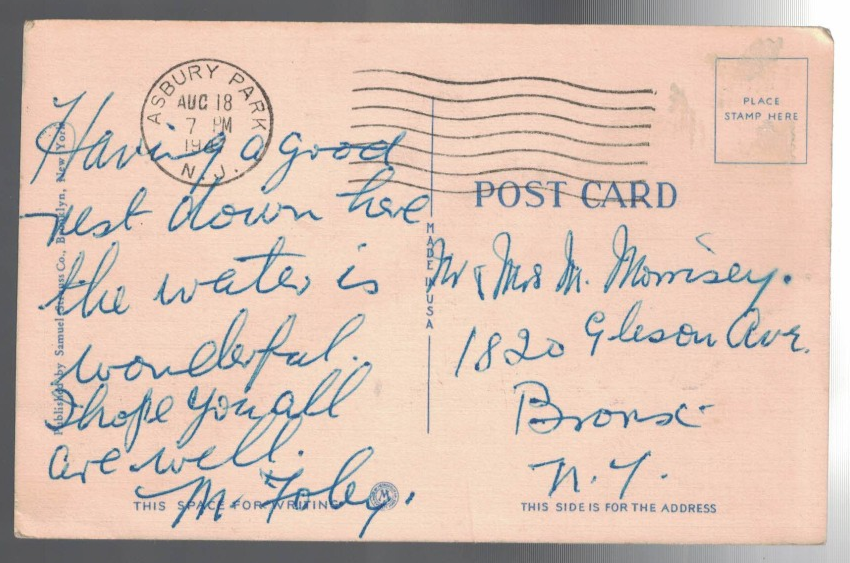 ASBURY PARK
AUG 18
7 PM
19
N.J.
PLACE
STAMP HERE
POST CARD
Having a good
rest down here
the water is
wonderful.
I hope you all
are well.
M. Foley.
Mr & Mrs M. Morrisey.
1820 Gleson Ave.
Bronx
N.Y.
MADE IN USA
Published by Samuel Strauss Co., Brooklyn, New York
THIS SPACE FOR WRITING
THIS SIDE IS FOR THE ADDRESS